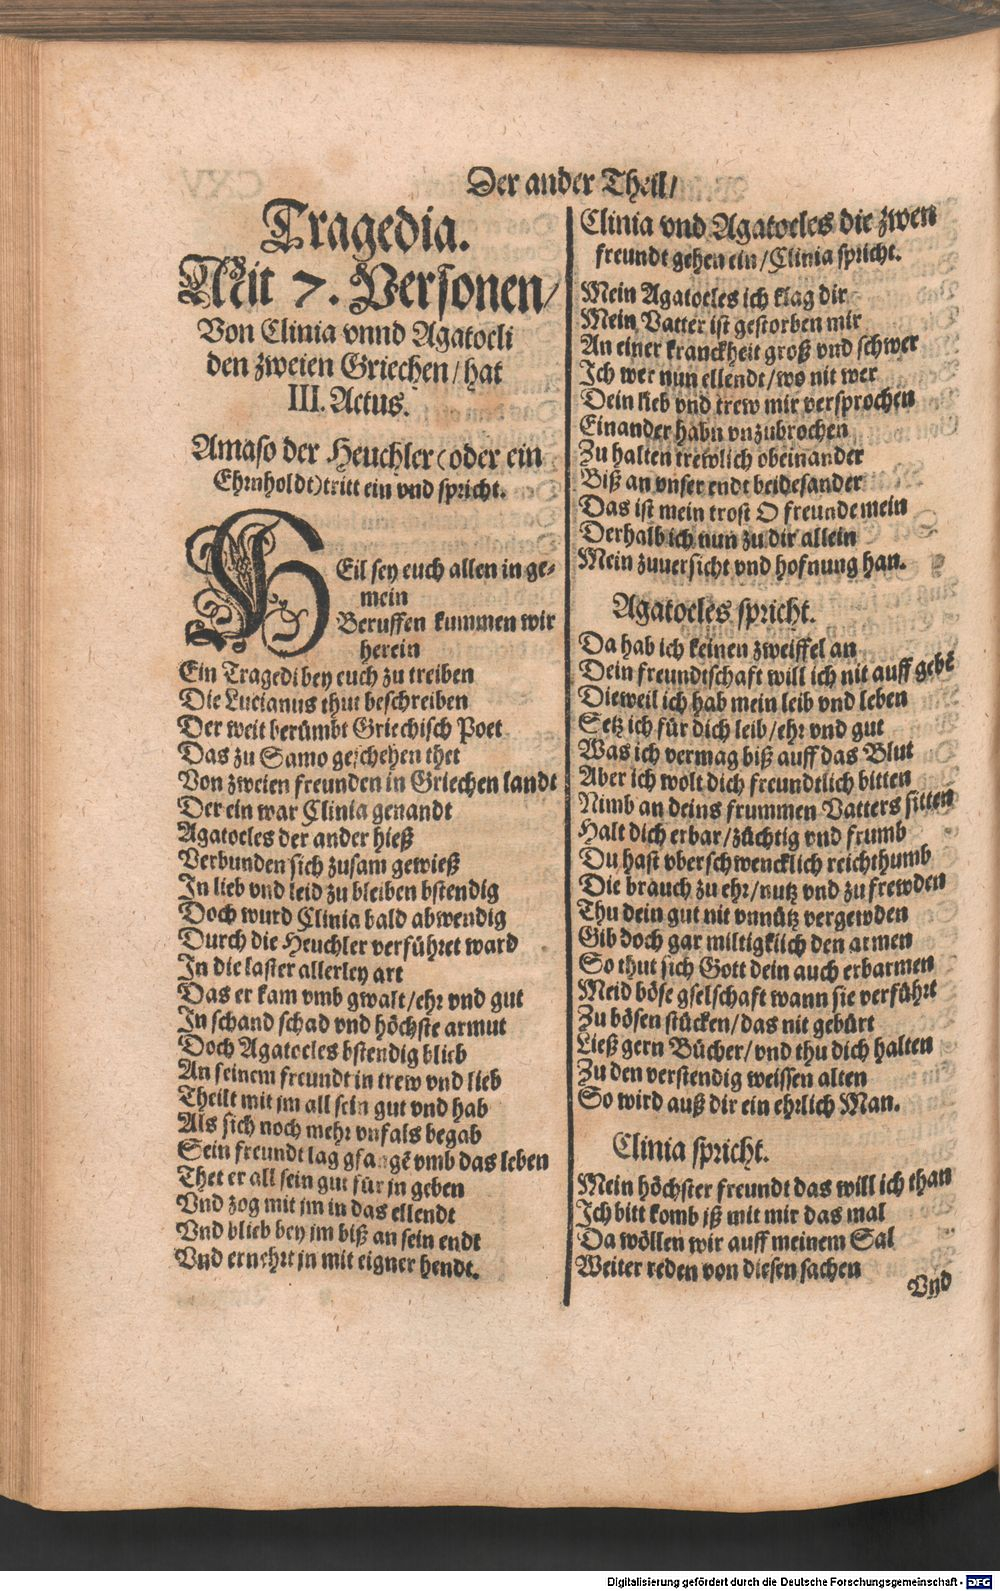 Der ander Theil/
Tragedia.
Mit 7. Personen/
Von Clinia vnnd Agatocli
den zweien Griechen/ hat
III. Actus.
Amaso der Heuchler (oder ein
Ehrnholdt) tritt ein vnd spricht.
HEil sey euch allen in ge-
mein
Beruffen kummen wir
herein
Ein Tragedi bey euch zu treiben
Die Lucianus thut beschreiben
Der weit berümbt Griechisch Poet
Das zu Samo geschehen thet
Von zweien freunden in Griechen landt
Der ein war Clinia genandt
Agatocles der ander hieß
Verbunden sich zusam gewieß
In lieb vnd leid zu bleiben bstendig
Doch wurd Clinia bald abwendig
Durch die Heuchler verführet ward
In die laster allerley art
Das er kam vmb gwalt/ehr vnd gut
In schand schad vnd höchste armut
Doch Agatocles bstendig blieb
An seinem freundt in trew vnd lieb
Theilt mit jm all sein gut vnd hab
Als sich noch mehr vnfals begab
Sein freundt lag gfangē vmb das leben
Thet er all sein gut für jn geben
Vnd zog mit jm in das ellendt
Vnd blieb bey jm biß an sein endt
Vnd ernehrt jn mit eigner hendt.
Clinia vnd Agatocles die zwen
freundt gehen ein/Clinia spricht.
Mein Agatocles ich klag dir
Mein Vatter ist gestorben mir
An einer kranckheit groß vnd schwer
Ich wer nun ellendt/wo nit wer
Dein lieb vnd trew mir versprochen
Einander habn vnzubrochen
Zu halten trewlich obeinander
Biß an vnser endt beidesander
Das ist mein trost O freunde mein
Derhalb ich nun zu dir allein
Mein zuuersicht vnd hofnung han.
Agatocles spricht.
Da hab ich keinen zweiffel an
Dein freundtschaft will ich nit auff gebē
Dieweil ich hab mein leib vnd leben
Setz ich für dich leib/ehr vnd gut
Was ich vermag biß auff das Blut
Aber ich wolt dich freundtlich bitten
Nimb an deins frummen Vatters sitten
Halt dich erbar/züchtig vnd frumb
Du hast vberschwencklich reichthumb
Die brauch zu ehr/nutz vnd zu frewden
Thu dein gut nit vnnütz vergewden
Gib doch gar miltigklich den armen
So thut sich Gott dein auch erbarmen
Meid böse gselschaft wann sie verführt
Zu bösen stücken/das nit gebürt
Ließ gern Bücher/vnd thu dich halten
Zu den verstendig weissen alten
So wird auß dir ein ehrlich Man.
Clinia spricht.
Mein höchster freundt das will ich than
Ich bitt komb jß mit mir das mal
Da wöllen wir auff meinem Sal
Weiter reden von diesen sachen
Vnd
Digitalisierung gefördert durch die Deutsche Forschungsgemeinschaft - DFG